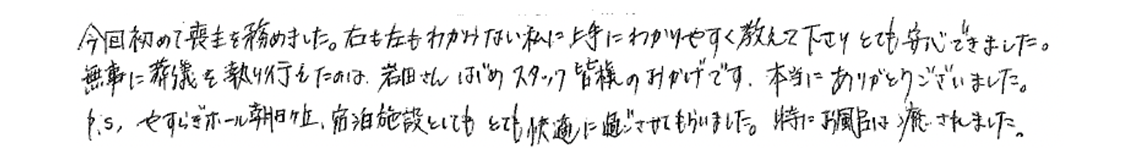 今回初めて喪主を務めました。右も左もわからない私に上手にわかりやすく教えて下さりとても安心できました。
無事に葬儀を執り行えたのは、岩田さんはじめスタッフ皆様のおかげです。本当にありがとうございました。
P.S, やすらぎホール朝日ヶ丘、宿泊施設としてもとても快適に過ごさせてもらいました。特にお風呂は癒されました。